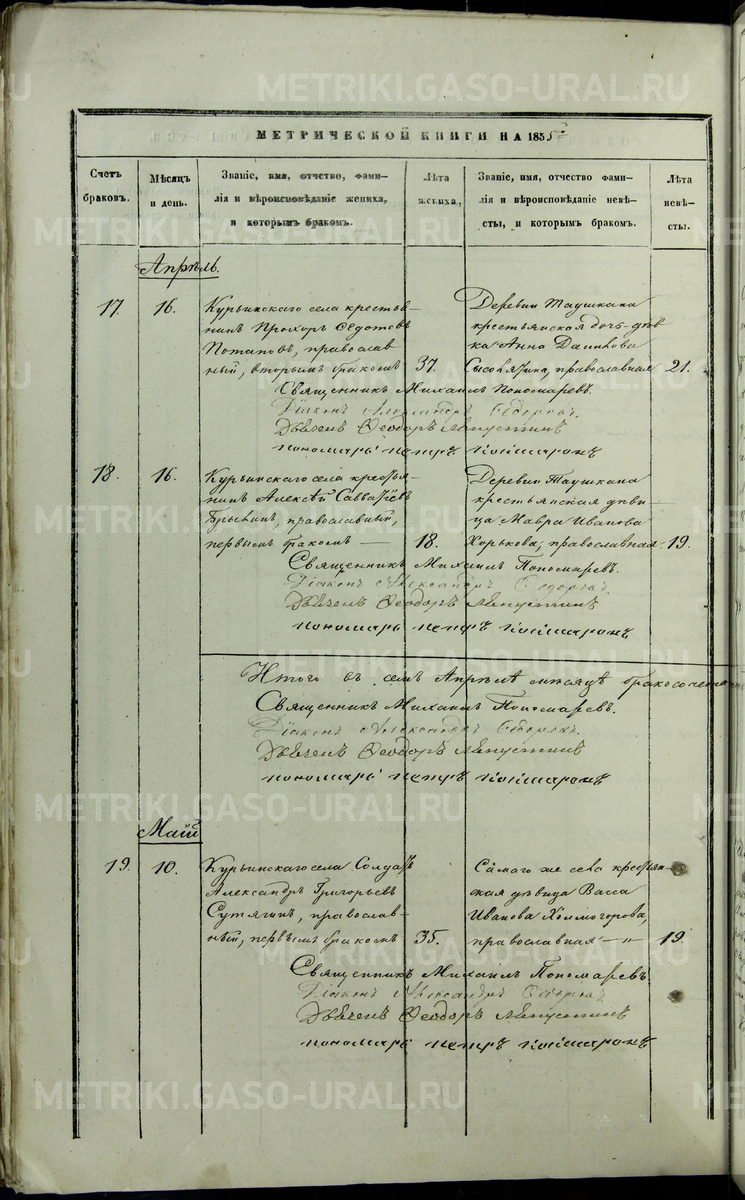 МЕТРИЧЕСКОЙ КНИГИ НА 1855
Счетъ браковъ.
Мѣсяцъ и день.
Званіе, имя, отчество, фами-
лія и вѣроисповѣданіе жениха,
и которымъ бракомъ.
Лѣта жениха.
Званіе, имя, отчество фами-
лія и вѣроисповѣданіе невѣ-
сты, и которымъ бракомъ.
Лѣта невѣ-
сты.
Апрѣль.
17. 16.
Курьинскаго села крестья-
нинъ Прохоръ Ѳедотовъ
Потаповъ, православ
ный, вторымъ бракомъ 37.
Деревни Таушкана
крестьянская дочь дѣв
ка Анна Данилова
православная 21.
Священникъ Михаилъ Пономаревъ.
Діаконъ Александръ
Дьячекъ Ѳеодоръ
пономарь петръ
18. 16.
Курьинскаго села крестья-
нинъ Алексѣй Савватіевъ
православный,
первымъ бракомъ — 18.
Деревни Таушкана
крестьянская дѣви-
ца Мавра Иванова
Хорькова, православная 19.
Священникъ Михаилъ Пономаревъ.
Діаконъ Александръ
Дьячекъ Ѳеодоръ
пономарь петръ
Итого въ семъ Апрѣлѣ мѣсяцѣ бракосочета
Священникъ Михаилъ Пономаревъ.
Діаконъ Александръ
Дьячекъ Ѳеодоръ
пономарь петръ
Маій
19. 10.
Курьинскаго села Солдатъ
Александръ Григорьевъ
Сутягинъ, православ-
ный, первымъ бракомъ 35.
Самаго же села крестьян-
ская дѣвица Васса
Иванова Холмогорова,
православная — 19.
Священникъ Михаилъ Пономаревъ.
Діаконъ Александръ
Дьячекъ Ѳеодоръ
пономарь петръ
METRIKI.GASO-URAL.RU